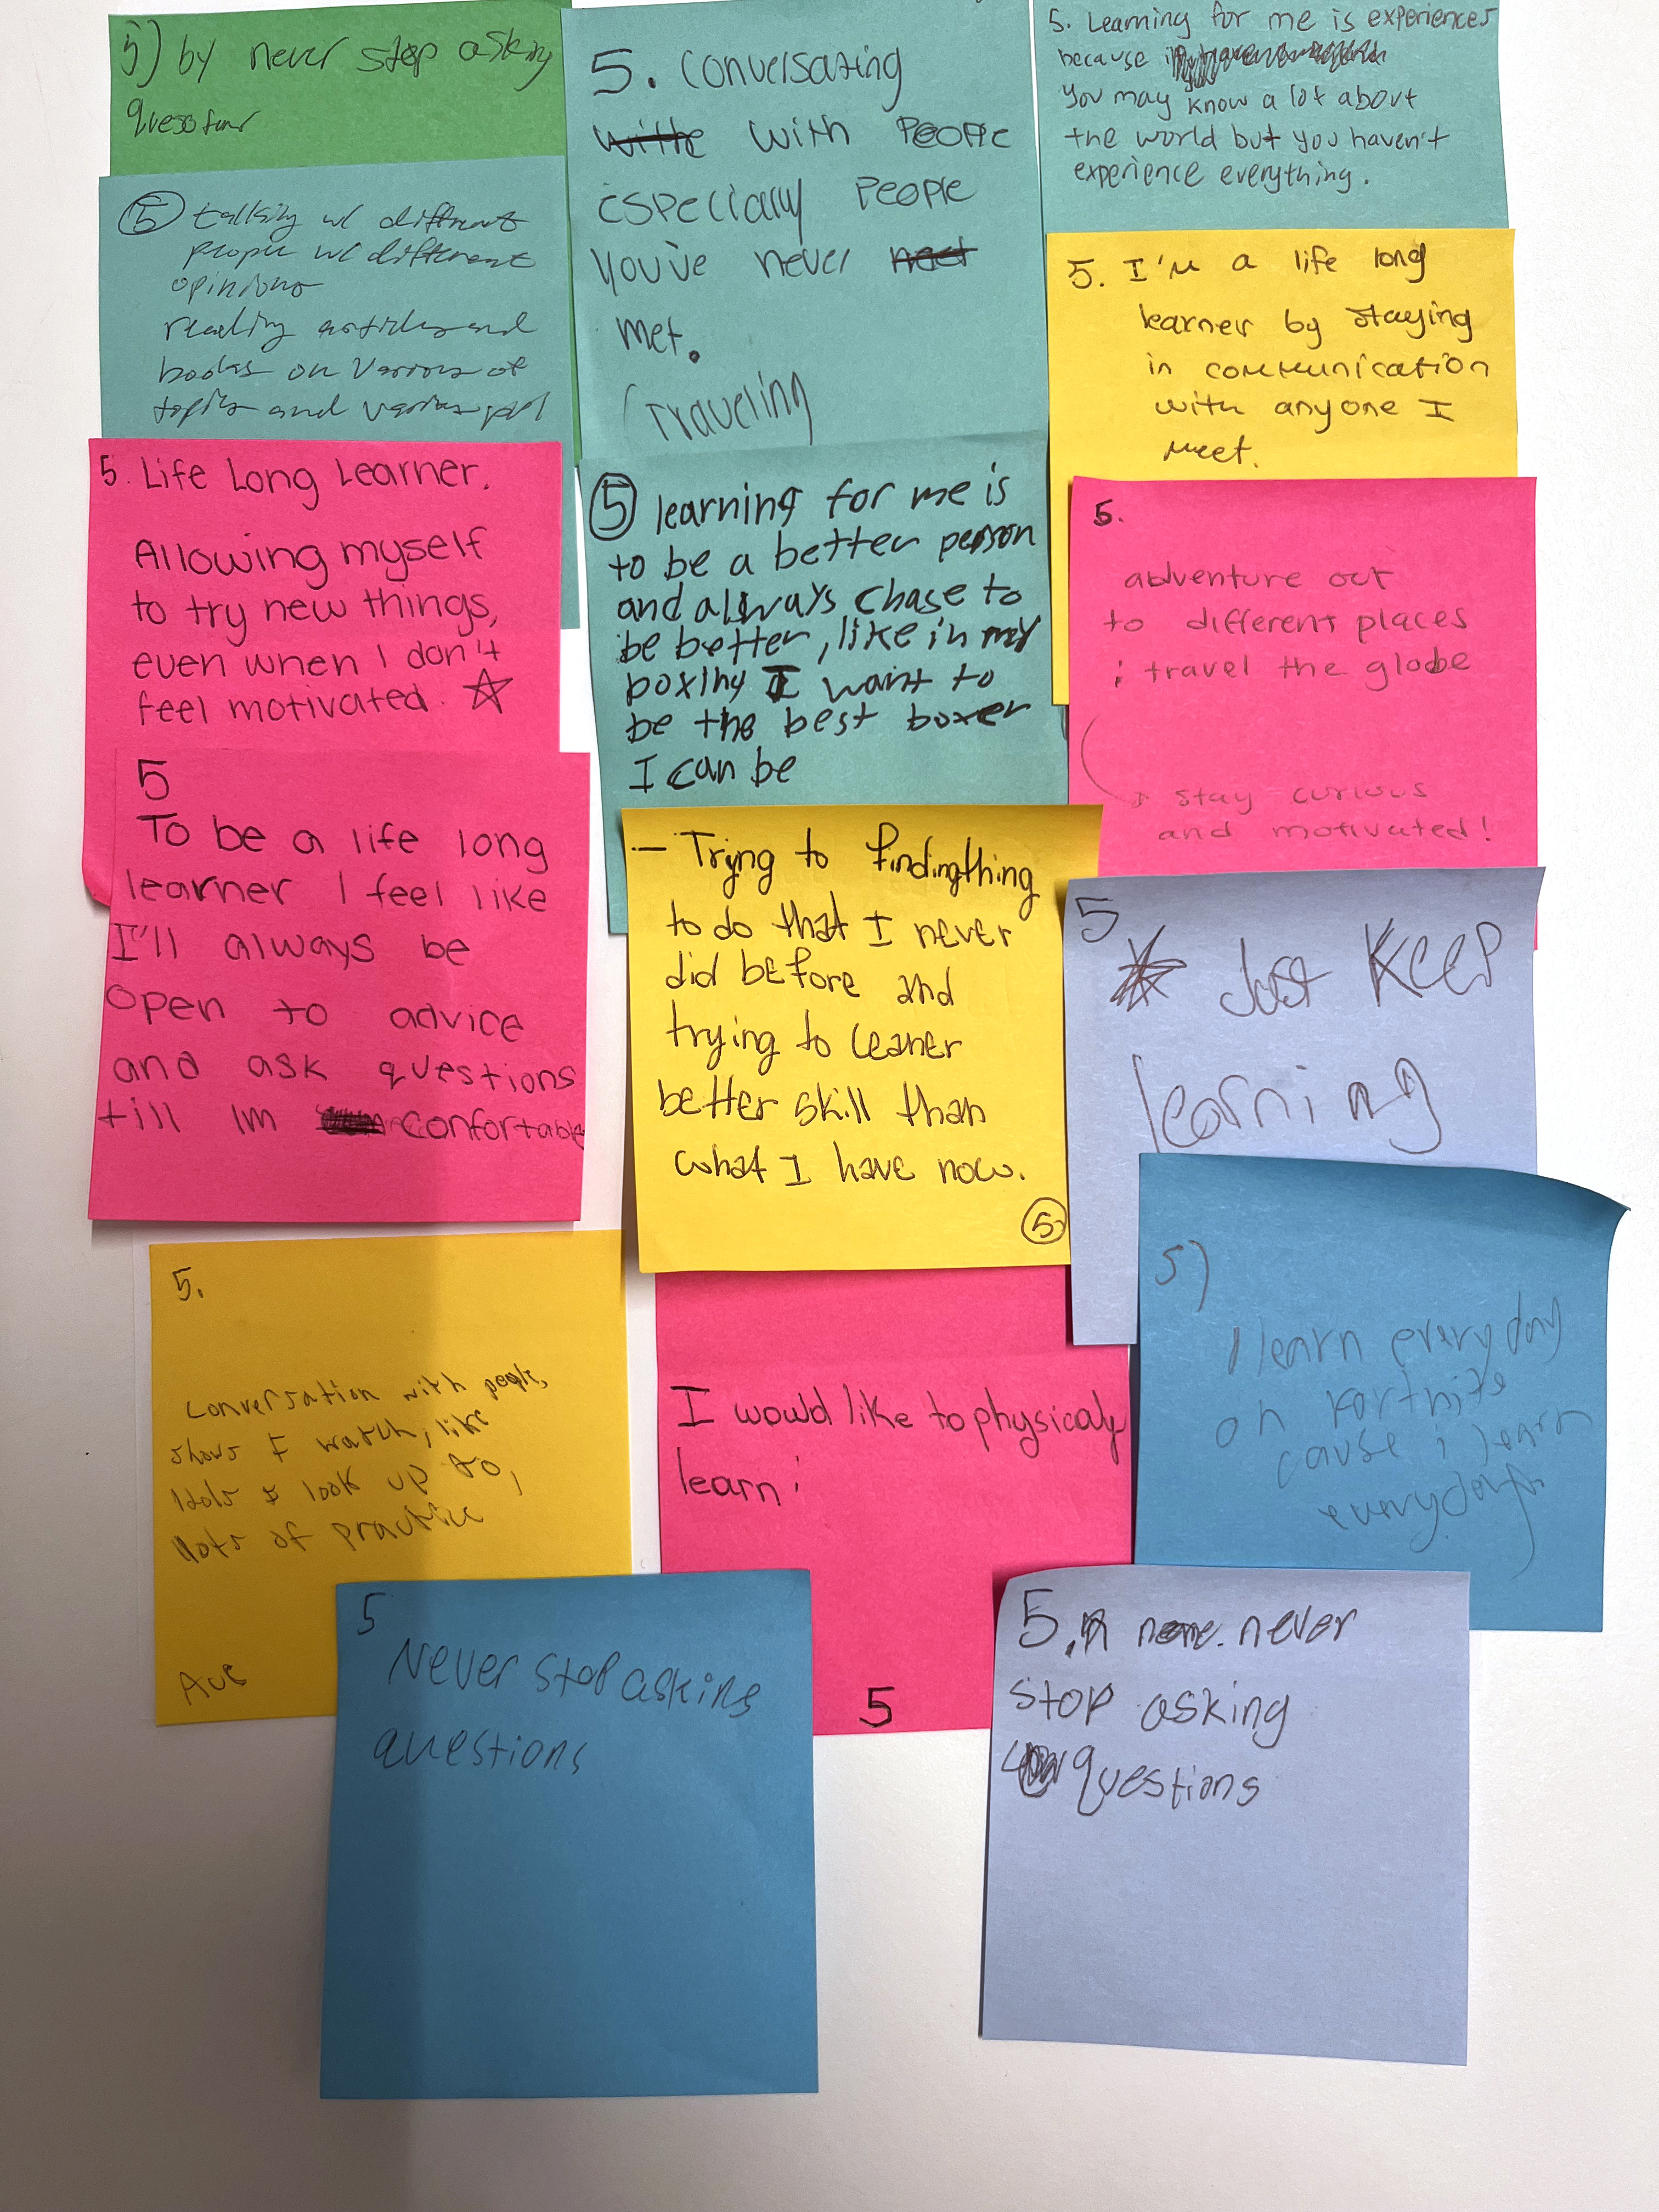 5) by never stop asking
5. Conversating
with People
Especially People
You've never
Met.
Traveling
5. Learning for me is experiences
because
You may know a lot about
the world but you haven't
experience everything.
5 talking w/ different
people w/ different
opinions
reading articles and
books on various of
topics and various
5. I'm a life long
learner by staying
in communication
with anyone I
meet.
5. Life Long Learner.
Allowing myself
to try new things,
even when I don't
feel motivated.
5 learning for me is
to be a better person
and always chase to
be better, like in my
boxing I want to
be the best boxer
I can be
5.
adventure out
to different places
i travel the globe
stay curious
and motivated!
5
To be a life long
learner I feel like
I'll always be
open to advice
and ask questions
till Im confortable
- Trying to findingthing
to do that I never
did before and
trying to leaner
better skill than
what I have now.
5
5
Just Keep
learning
5)
I learn every day
on Fortnite
cause i learn
everyday
5.
Conversation with people,
shows I watch, like
Idols I look up to,
lots of practice
5
I would like to physicaly
learn
5
Never stop asking
questions
5. never
stop asking
questions